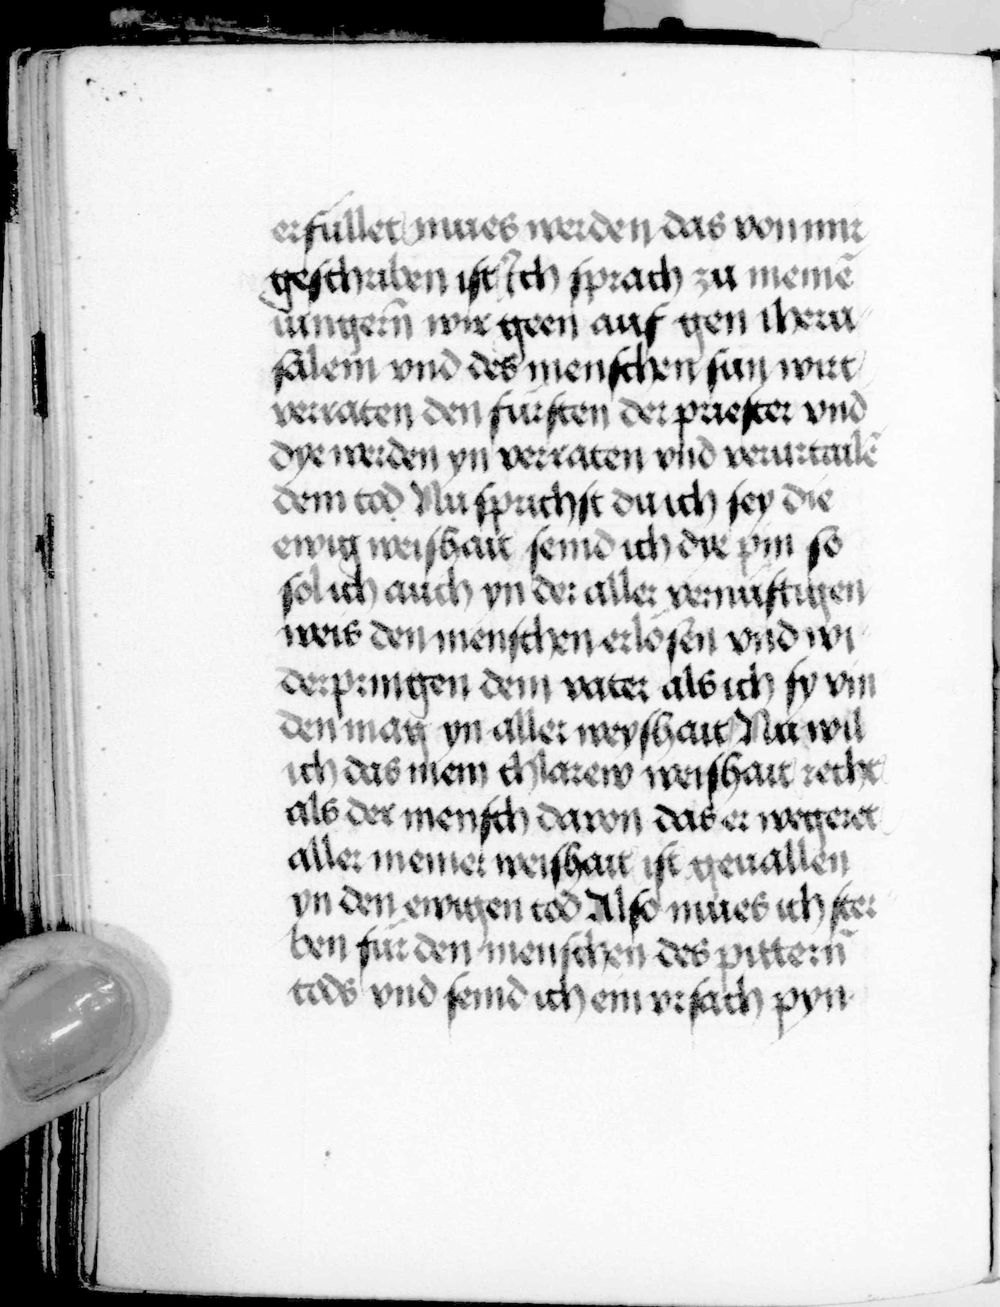 erfullet mues werden das von mir
geschriben ist Ich sprach zu meinē
iungerñ wir geen auf gen iheru
salem vnd des menschen sun wirt
verraten den fursten der priester vnd
dye werden yn verraten vnd verurtailē
dem tod Nu sprichst du ich sey die
ewig weishait seind ich die pin so
sol ich auch yn der aller vernuftigen
weis den menschen erlösen vnd wi
derpringen dem vater als ich sy vin
den mag yn aller weyshait Nu wil
ich das mein chlarew weishait recht
als der mensch davon das er wegeret
aller meiner weishait ist geuallen
yn den ewigen tod Also mues ich ster
ben für den menschen des pitterñ
tods vnd seind ich ein vrsach pyn